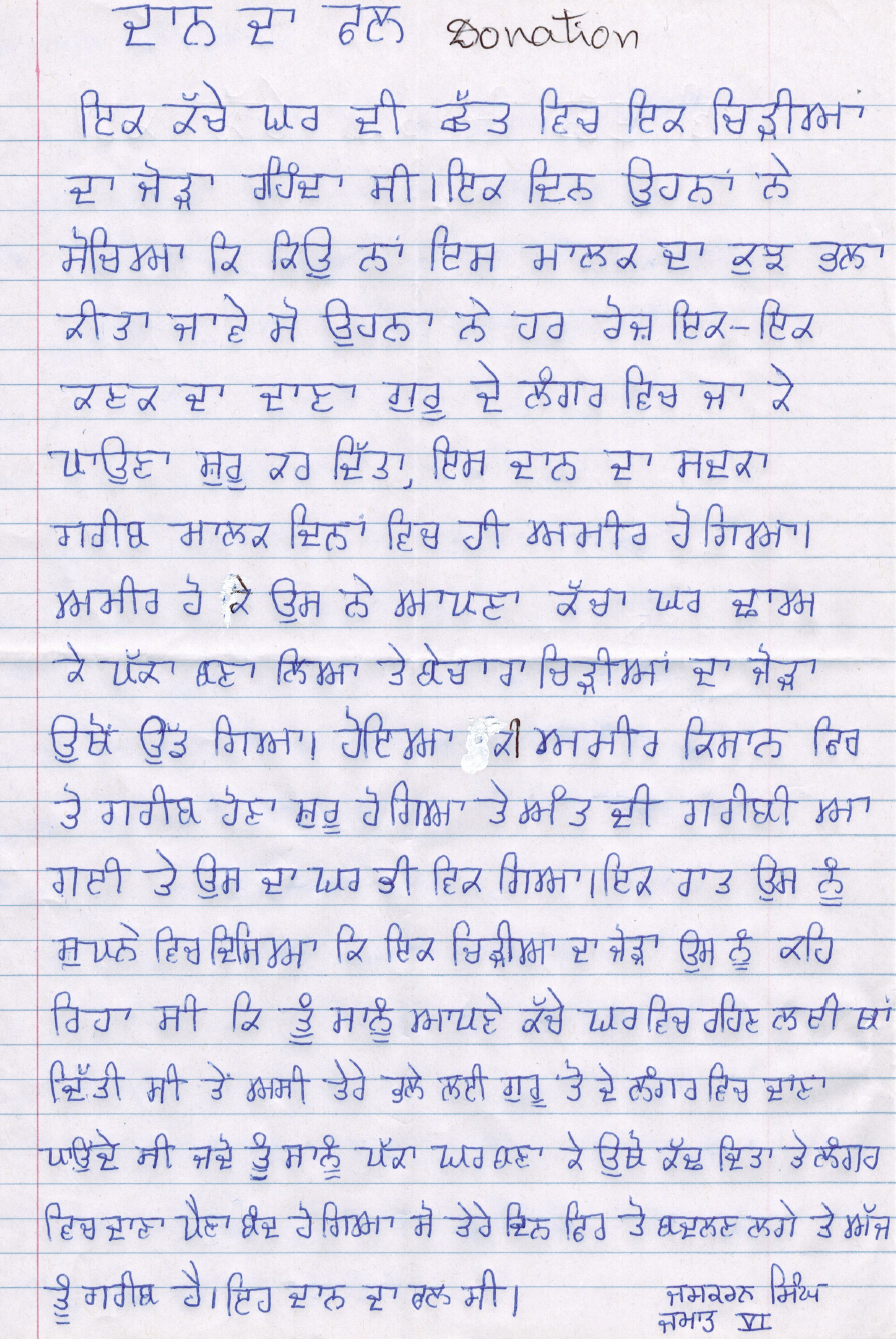 ਦਾਨ ਦਾ ਫਲ Donation
ਇਕ ਕੱਚੇ ਘਰ ਦੀ ਛੱਤ ਵਿਚ ਇਕ ਚਿੜੀਆਂ
ਦਾ ਜੋੜਾ ਰਹਿੰਦਾ ਸੀ। ਇਕ ਦਿਨ ਉਹਨਾਂ ਨੇ
ਸੋਚਿਆ ਕਿ ਕਿਉ ਨਾਂ ਇਸ ਮਾਲਕ ਦਾ ਕੁਝ ਭਲਾ
ਕੀਤਾ ਜਾਵੇ ਸੋ ਉਹਨਾ ਨੇ ਹਰ ਰੋਜ਼ ਇਕ-ਇਕ
ਕਣਕ ਦਾ ਦਾਣਾ ਗੁਰੂ ਦੇ ਲੰਗਰ ਵਿਚ ਜਾ ਕੇ
ਪਾਉਣਾ ਸ਼ੁਰੂ ਕਰ ਦਿੱਤਾ, ਇਸ ਦਾਨ ਦਾ ਸਦਕਾ
ਗਰੀਬ ਮਾਲਕ ਦਿਨਾਂ ਵਿਚ ਹੀ ਅਮੀਰ ਹੋ ਗਿਆ।
ਅਮੀਰ ਹੋ ਕੇ ਉਸ ਨੇ ਆਪਣਾ ਕੱਚਾ ਘਰ ਢਾਅ
ਕੇ ਪੱਕਾ ਬਣਾ ਲਿਆ ਤੇ ਬੇਚਾਰਾ ਚਿੜੀਆਂ ਦਾ ਜੋੜਾ
ਉਥੋਂ ਉੱਡ ਗਿਆ। ਹੋਇਆ ਕੀ ਅਮੀਰ ਕਿਸਾਨ ਫਿਰ
ਤੋ ਗਰੀਬ ਹੋਣਾ ਸ਼ੁਰੂ ਹੋ ਗਿਆ ਤੇ ਅੰਤ ਦੀ ਗਰੀਬੀ ਆ
ਗਈ ਤੇ ਉਸ ਦਾ ਘਰ ਭੀ ਵਿਕ ਗਿਆ। ਇਕ ਰਾਤ ਉਸ ਨੂੰ
ਸੁਪਨੇ ਵਿਚ ਦਿਸਿਆ ਕਿ ਇਕ ਚਿੜੀਆ ਦਾ ਜੋੜਾ ਉਸ ਨੂੰ ਕਹਿ
ਰਿਹਾ ਸੀ ਕਿ ਤੂੰ ਸਾਨੂੰ ਆਪਣੇ ਕੱਚੇ ਘਰ ਵਿਚ ਰਹਿਣ ਲਈ ਥਾਂ
ਦਿੱਤੀ ਸੀ ਤੇਂ ਅਸੀ ਤੇਰੇ ਭਲੇ ਲਈ ਗੁਰੂ ਤੋ ਦੇ ਲੰਗਰ ਵਿਚ ਦਾਣਾ
ਪਾਉਂਦੇ ਸੀ ਜਦੋ ਤੂੰ ਸਾਨੂੰ ਪੱਕਾ ਘਰ ਬਣਾ ਕੇ ਉਥੋ ਕੱਢ ਦਿਤਾ ਤੇ ਲੰਗਰ
ਵਿਚ ਦਾਣਾ ਪੈਣਾ ਬੰਦ ਹੋ ਗਿਆ ਸੋ ਤੇਰੇ ਦਿਨ ਫਿਰ ਤੋ ਬਦਲਣ ਲਗੇ ਤੇ ਅੱਜ
ਤੂੰ ਗਰੀਬ ਹੈ। ਇਹ ਦਾਨ ਦਾ ਫਲ ਸੀ।
ਜਸਕਰਨ ਸਿੰਘ
ਜਮਾਤ VI